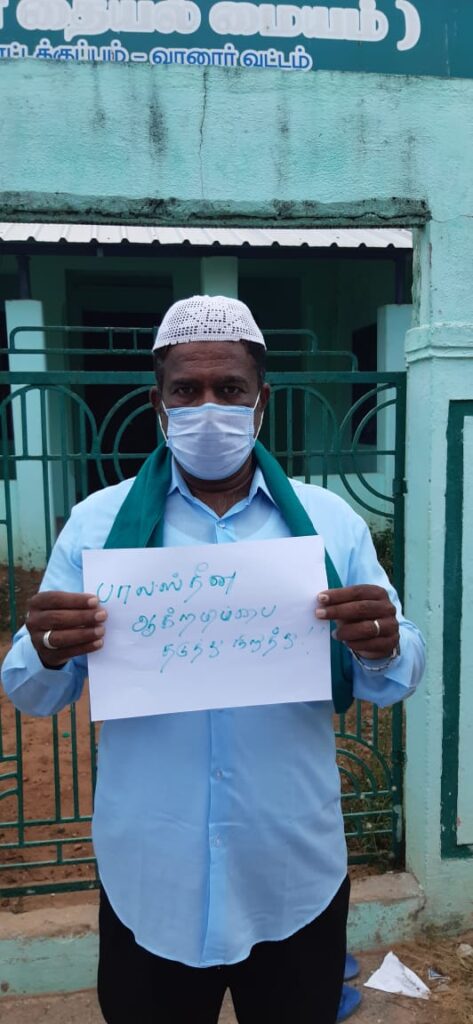 தையல் மையம் )
ட்டக்குப்பம் - வானூர் வட்டம்
பாலஸ்தீன
ஆக்கிரமிப்பை
தடுத்து நிறுத்து!!